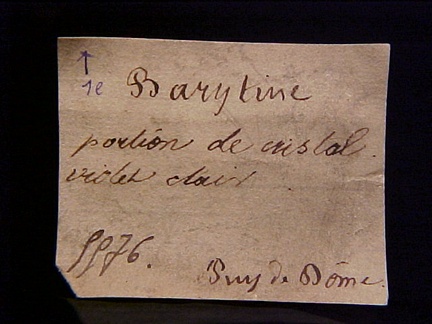 ↑
1e Barytine
portion de cristal.
violet clair
Puy de Dôme.